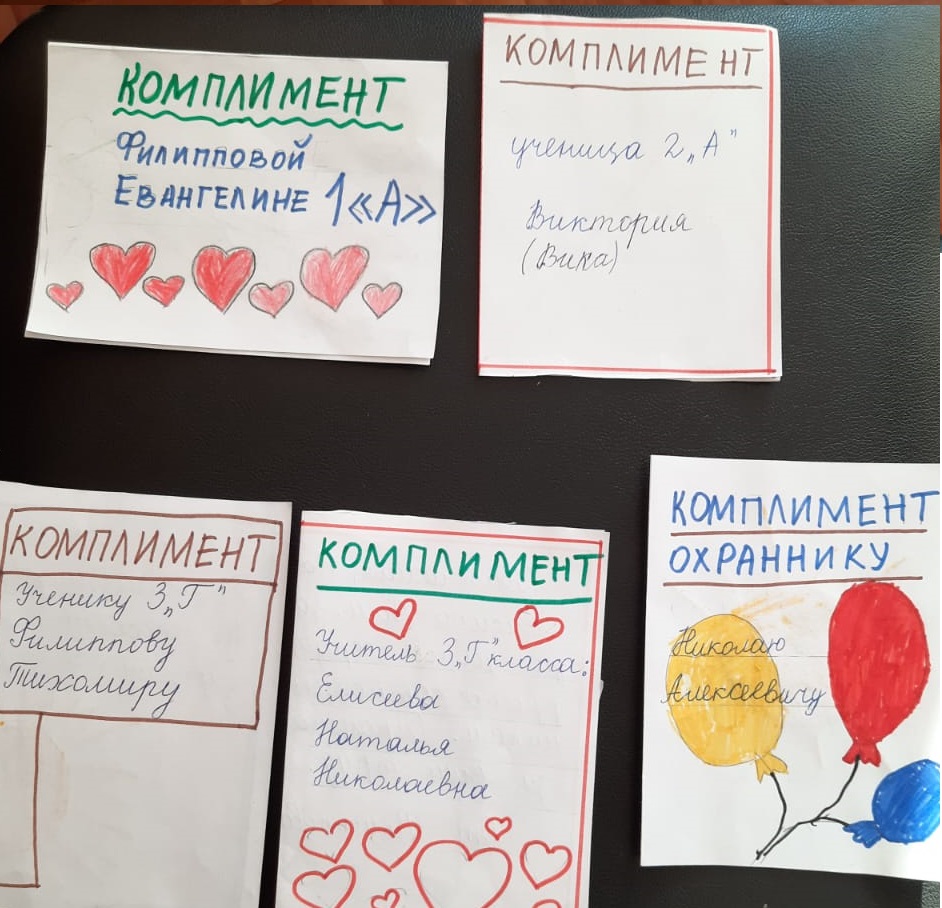 КОМПЛИМЕНТ
Филипповой
Евангелине 1«А»
КОМПЛИМЕНТ
ученица 2„А"
Виктория
(Вика)
КОМПЛИМЕНТ
Ученику 3„Г"
Филиппову
Тихомиру
КОМПЛИМЕНТ
Учитель 3„Г" класса:
Елисеева
Наталья
Николаевна
КОМПЛИМЕНТ
ОХРАННИКУ
Николаю
Алексеевичу